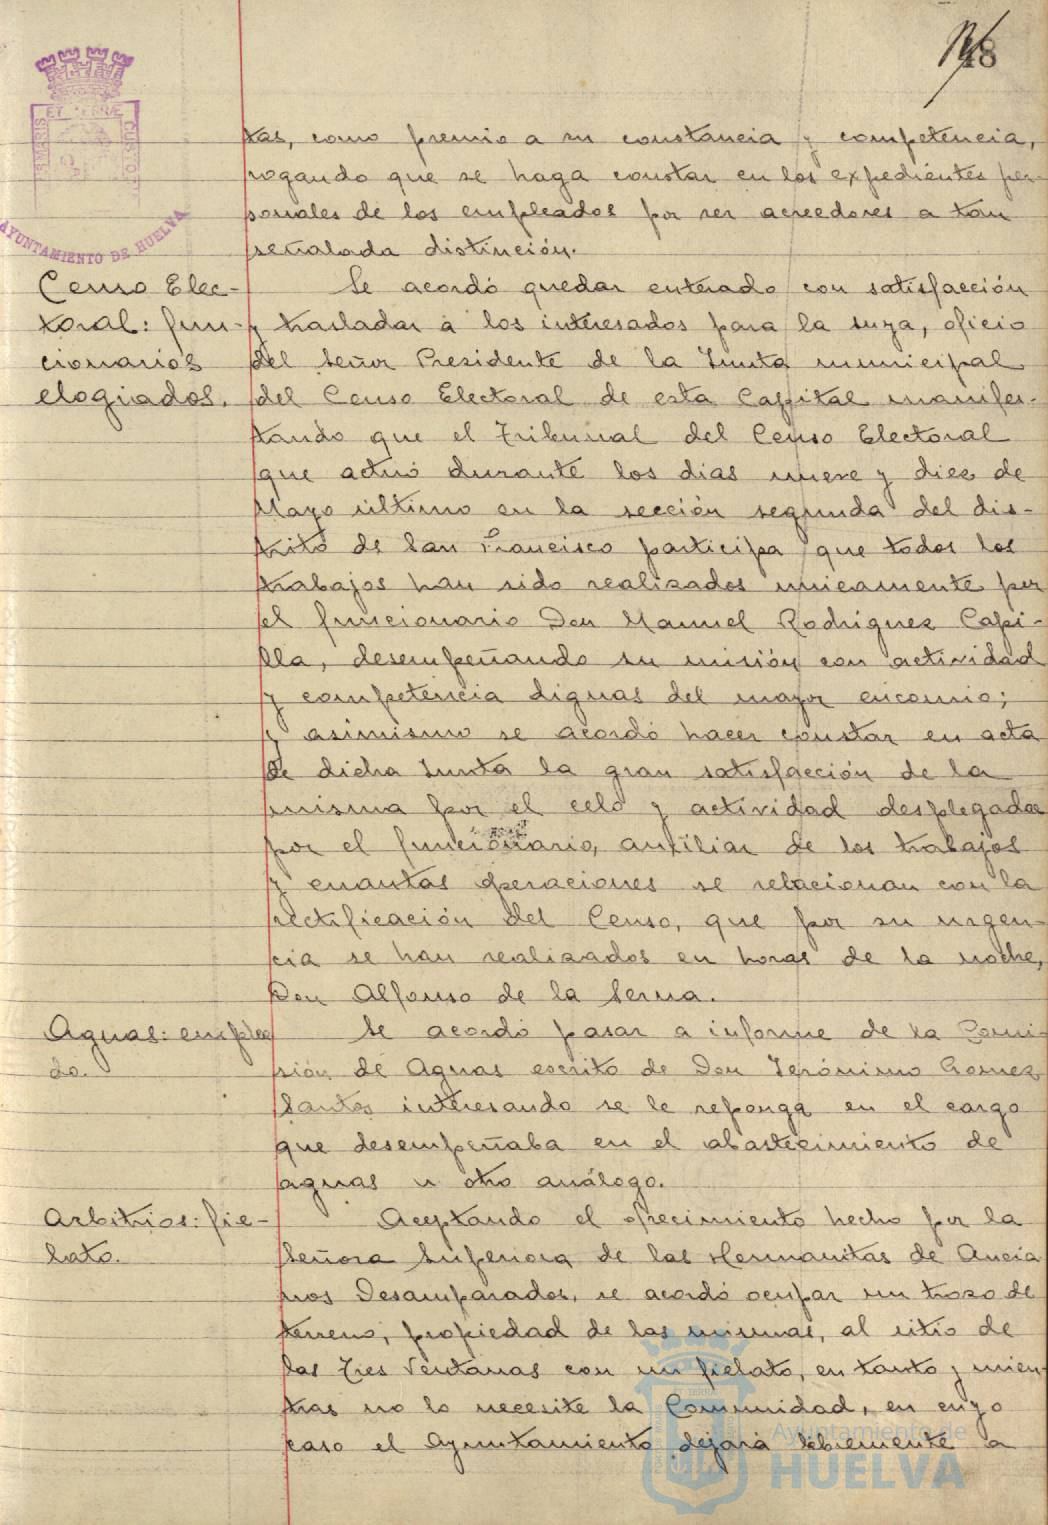 48
PORTUS MARIS ET TERRÆ CUSTODIA
AYUNTAMIENTO DE HUELVA
tas, como premio a su constancia y competencia,
rogando que se haga constar en los expedientes per-
sonales de los empleados por ser acreedores a tan
señalada distinción.
Censo Elec-
toral: fun-
cionarios
elogiados.
Se acordó quedar enterado con satisfacción
y trasladar a los interesados para la suya, oficio
del Señor Presidente de la Junta municipal
del Censo Electoral de esta Capital manifes-
tando que el Tribunal del Censo Electoral
que actuó durante los dias nueve y diez de
Mayo último en la sección segunda del dis-
trito de San Francisco participa que todos los
trabajos han sido realizados unicamente por
el funcionario Don Manuel Rodriguez Capi-
lla, desempeñando su misión con actividad
y competencia dignas del mayor encomio;
y asimismo se acordó hacer constar en acta
de dicha Junta la gran satisfacción de la
misma por el celo y actividad desplegados
por el funcionario, auxiliar de los trabajos
y cuantas operaciones se relacionan con la
rectificación del Censo, que por su urgen-
cia se han realizados en horas de la noche,
Don Alfonso de la Serna.
Aguas: emplea
do.
Se acordó pasar a informe de la Comi-
sión de Aguas escrito de Don Jerónimo Gomez
Santos interesando se le reponga en el cargo
que desempeñaba en el abastecimiento de
aguas u otro análogo.
Arbitrios: fie-
lato.
Aceptando el ofrecimiento hecho por la
Señora Superiora de las Hermanitas de Ancia
nos Desamparados, se acordó ocupar un trozo de
terreno, propiedad de las mismas, al sitio de
las Tres Ventanas con un fielato, en tanto y mien-
tras no lo necesite la Comunidad, en cuyo
caso el Ayuntamiento dejará libremente a
Ayuntamiento de
HUELVA